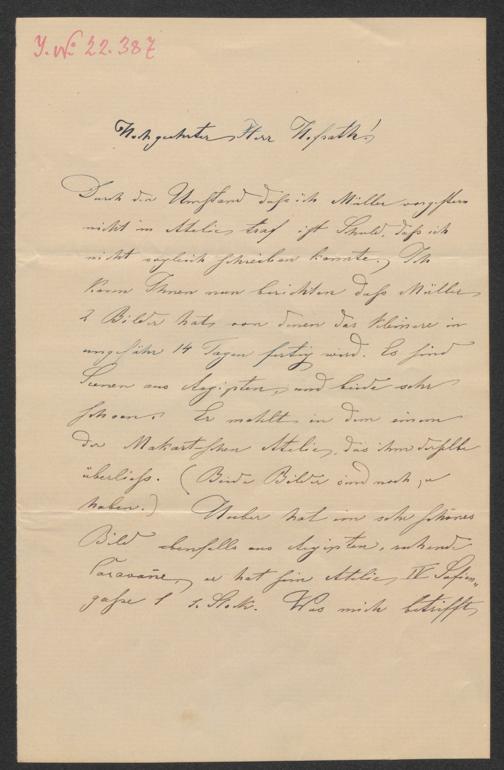 J. No 22.387
Hochgeehrter Herr Hofrath!
Durch den Umstand daß ich Müller vorgestern
nicht im Atelier traf ist Schuld, daß ich
nicht sogleich schreiben konnte. Ich
kann Ihnen nun berichten daß Müller
2 Bilder hat, von denen das kleinere in
ungefähr 14 Tagen fertig wird. Es sind
Scenen aus Aegipten, und beide sehr
schoen. Er mahlt in dem einen
der Makartschen Atelier, das ihm derselbe
überließ. (Beide Bilder sind noch zu
haben.) Hueber hat ein sehr schönes
Bild ebenfalls aus Aegipten, ruhende
Caravane, er hat sein Atelier IV
gaße 1 1. Stok. Was mich betrifft,